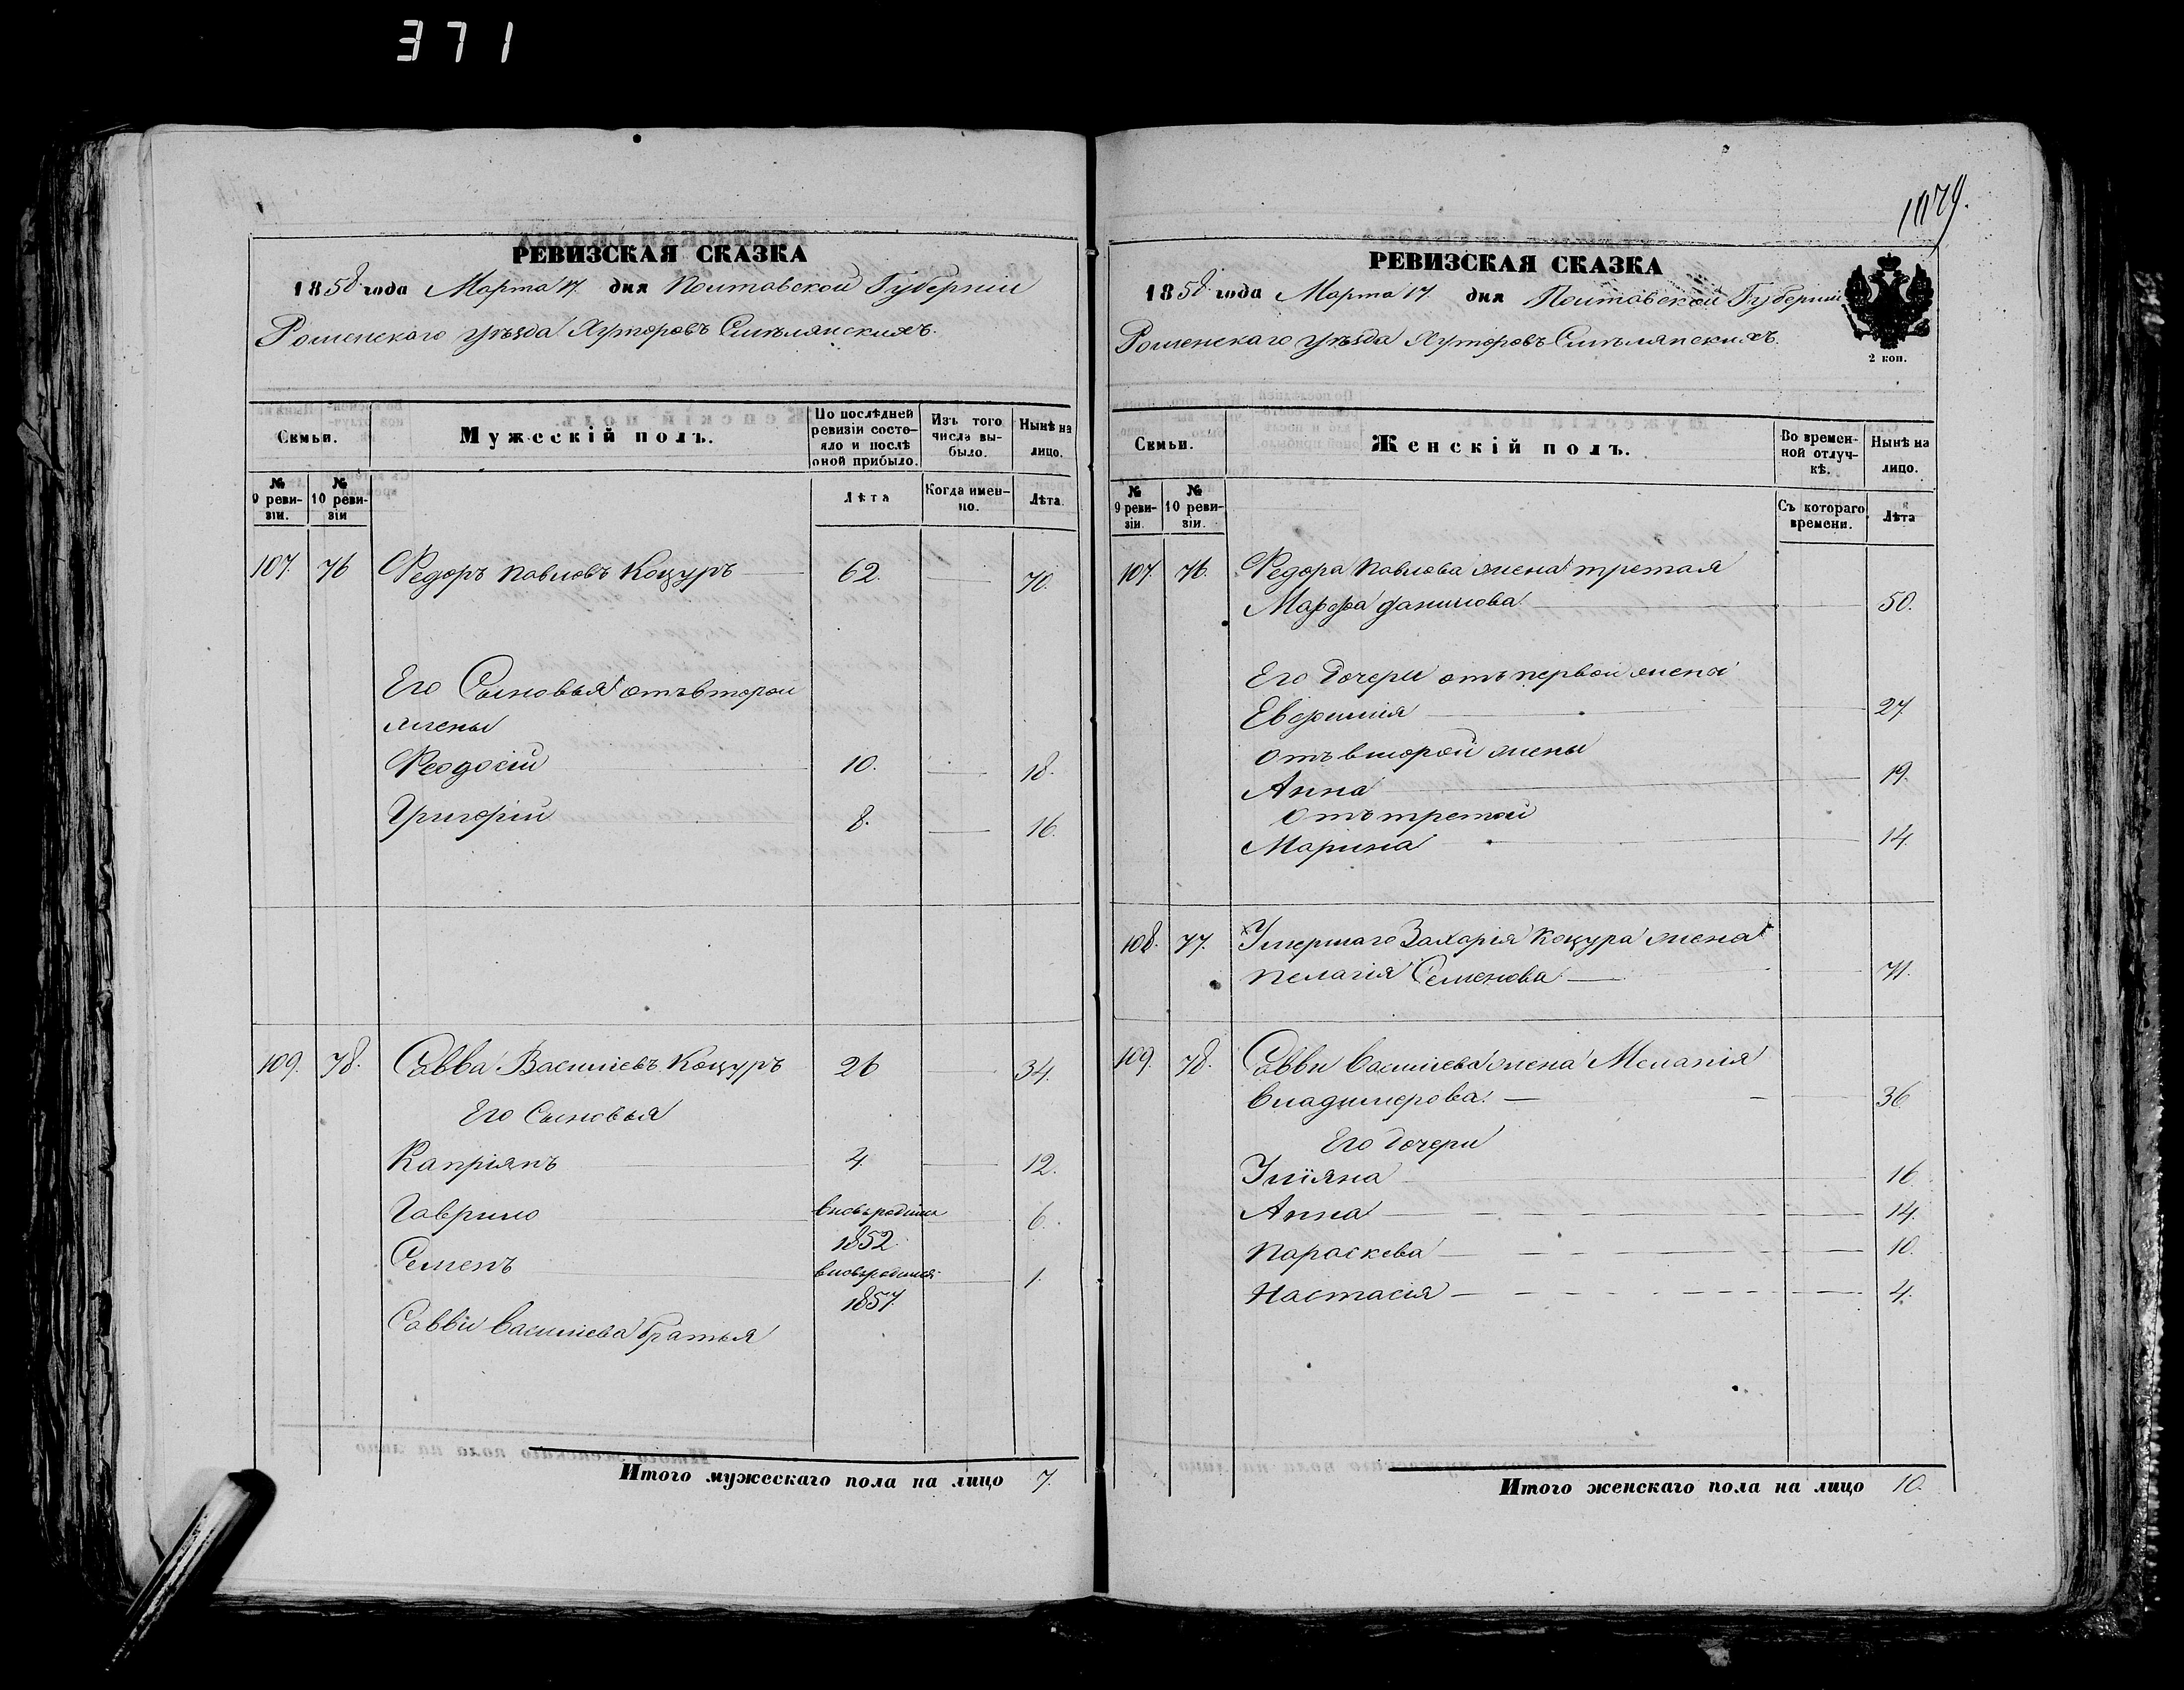 371
1179.
РЕВИЗСКАЯ СКАЗКА
1858 года Марта 17. дня Полтавской Губерніи
Роменскаго уѣзда Хуторовъ Смѣлянскихъ.
Семьи.
Мужескій полъ.
По послѣдней ревизіи состояло и послѣ оной прибыло.
Изъ того числа выбыло.
Нынѣ на лицо.
№ 9 ревизіи.
№ 10 ревизіи
Лѣта
Когда именно.
Лѣта.
107. 76 Федоръ Павловъ Коцуръ 62. 70.
Его Сыновья отъ второй
жены
Феодосій 10. 18.
Григорій 8. 16.
109. 78. Савва Василіевъ Коцуръ 26 34.
Его Сыновья
Капріянъ 4. 12.
Гаврило вновьрожден 6.
1852.
Семенъ вновьрожден 1.
1857.
Саввы Василіева братья
Итого мужескаго пола на лицо 7.
РЕВИЗСКАЯ СКАЗКА
1858 года Марта 17. дня Полтавской Губерніи
Роменскаго уѣзда Хуторовъ Смѣлянскихъ.
2 коп.
Семьи.
Женскій полъ.
Во временной отлучкѣ.
Нынѣ на лицо.
№ 9 ревизіи.
№ 10 ревизіи.
Съ котораго времени.
Лѣта
107. 76. Федора Павлова жена третая
Марфа Данилова 50.
Его дочери отъ первой жены
Евфимія 27
отъ второй жены
Анна 19.
отъ третей
Марина 14.
108. 77. Умершаго Захарія Коцура жена
Пелагія Семенова 71.
109. 78. Саввы Василіева жена Меланія
Владимерова. 36
Его дочери
Уліяна 16
Анна 14.
Параскева 10.
Настасія 4.
Итого женскаго пола на лицо 10.